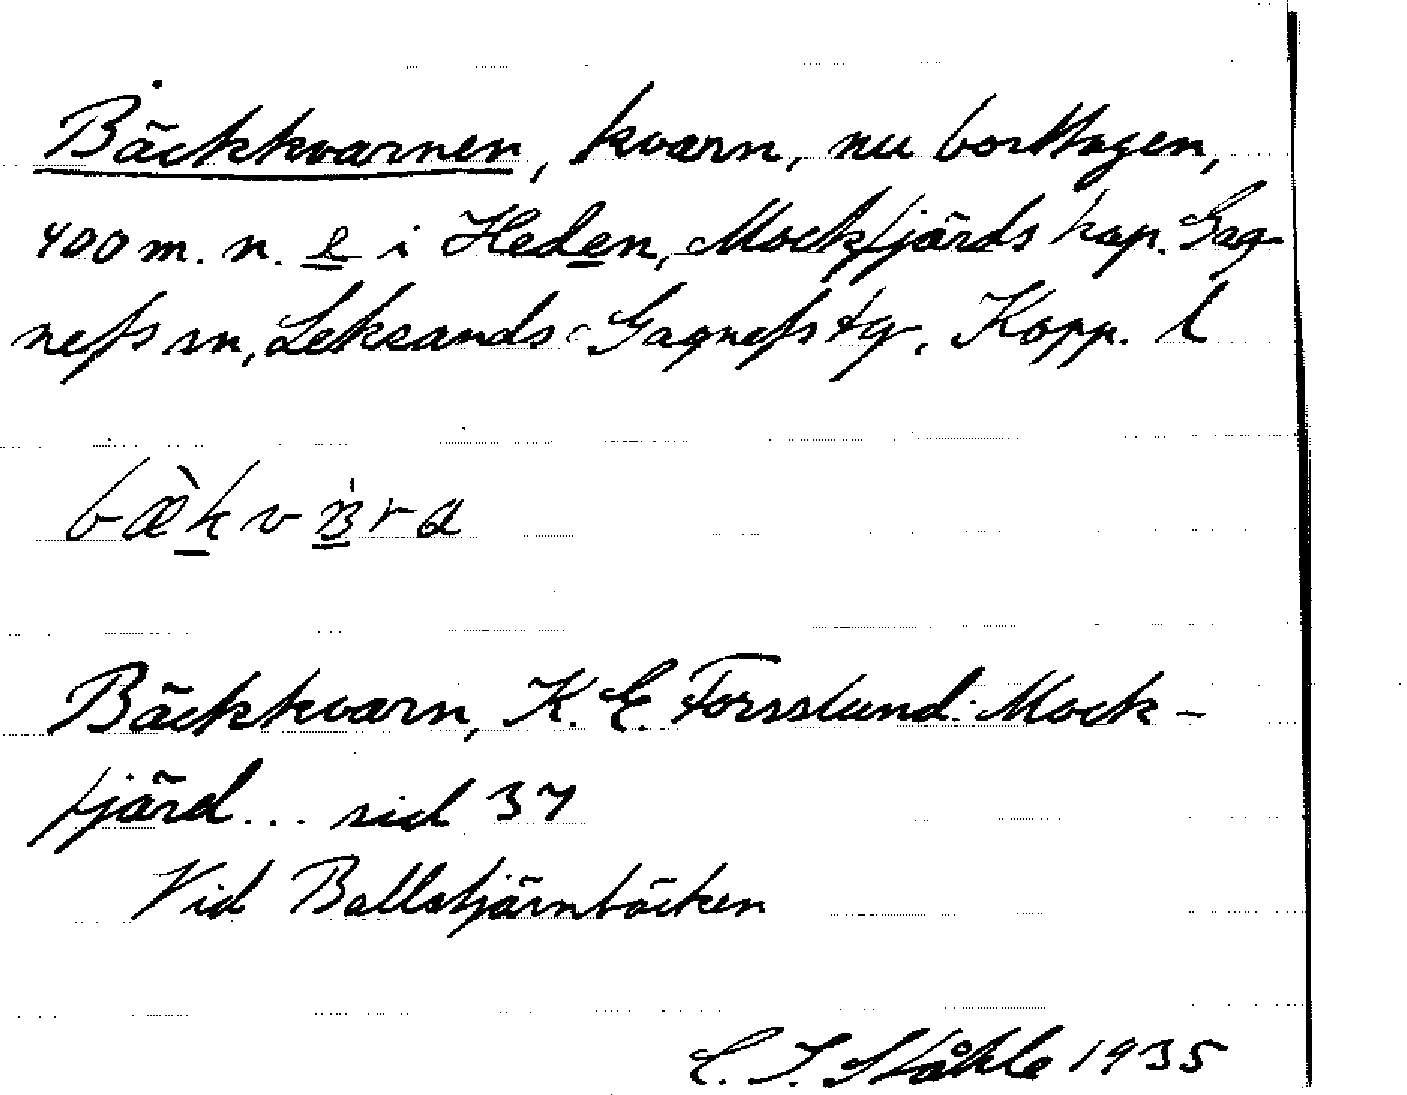 Bäckkvarnen, kvarn, nu borttagen,
400 m. n. e i Heden, Mockfjärds kap. Gag-
nefs sn, Leksands-Gagnefs tg. Kopp. l
Bäckkvarn, K. E. Forsslund: Mock-
fjärd... sid 37
Vid Ballstjärnbäcken
C. I. Ståhle 1935